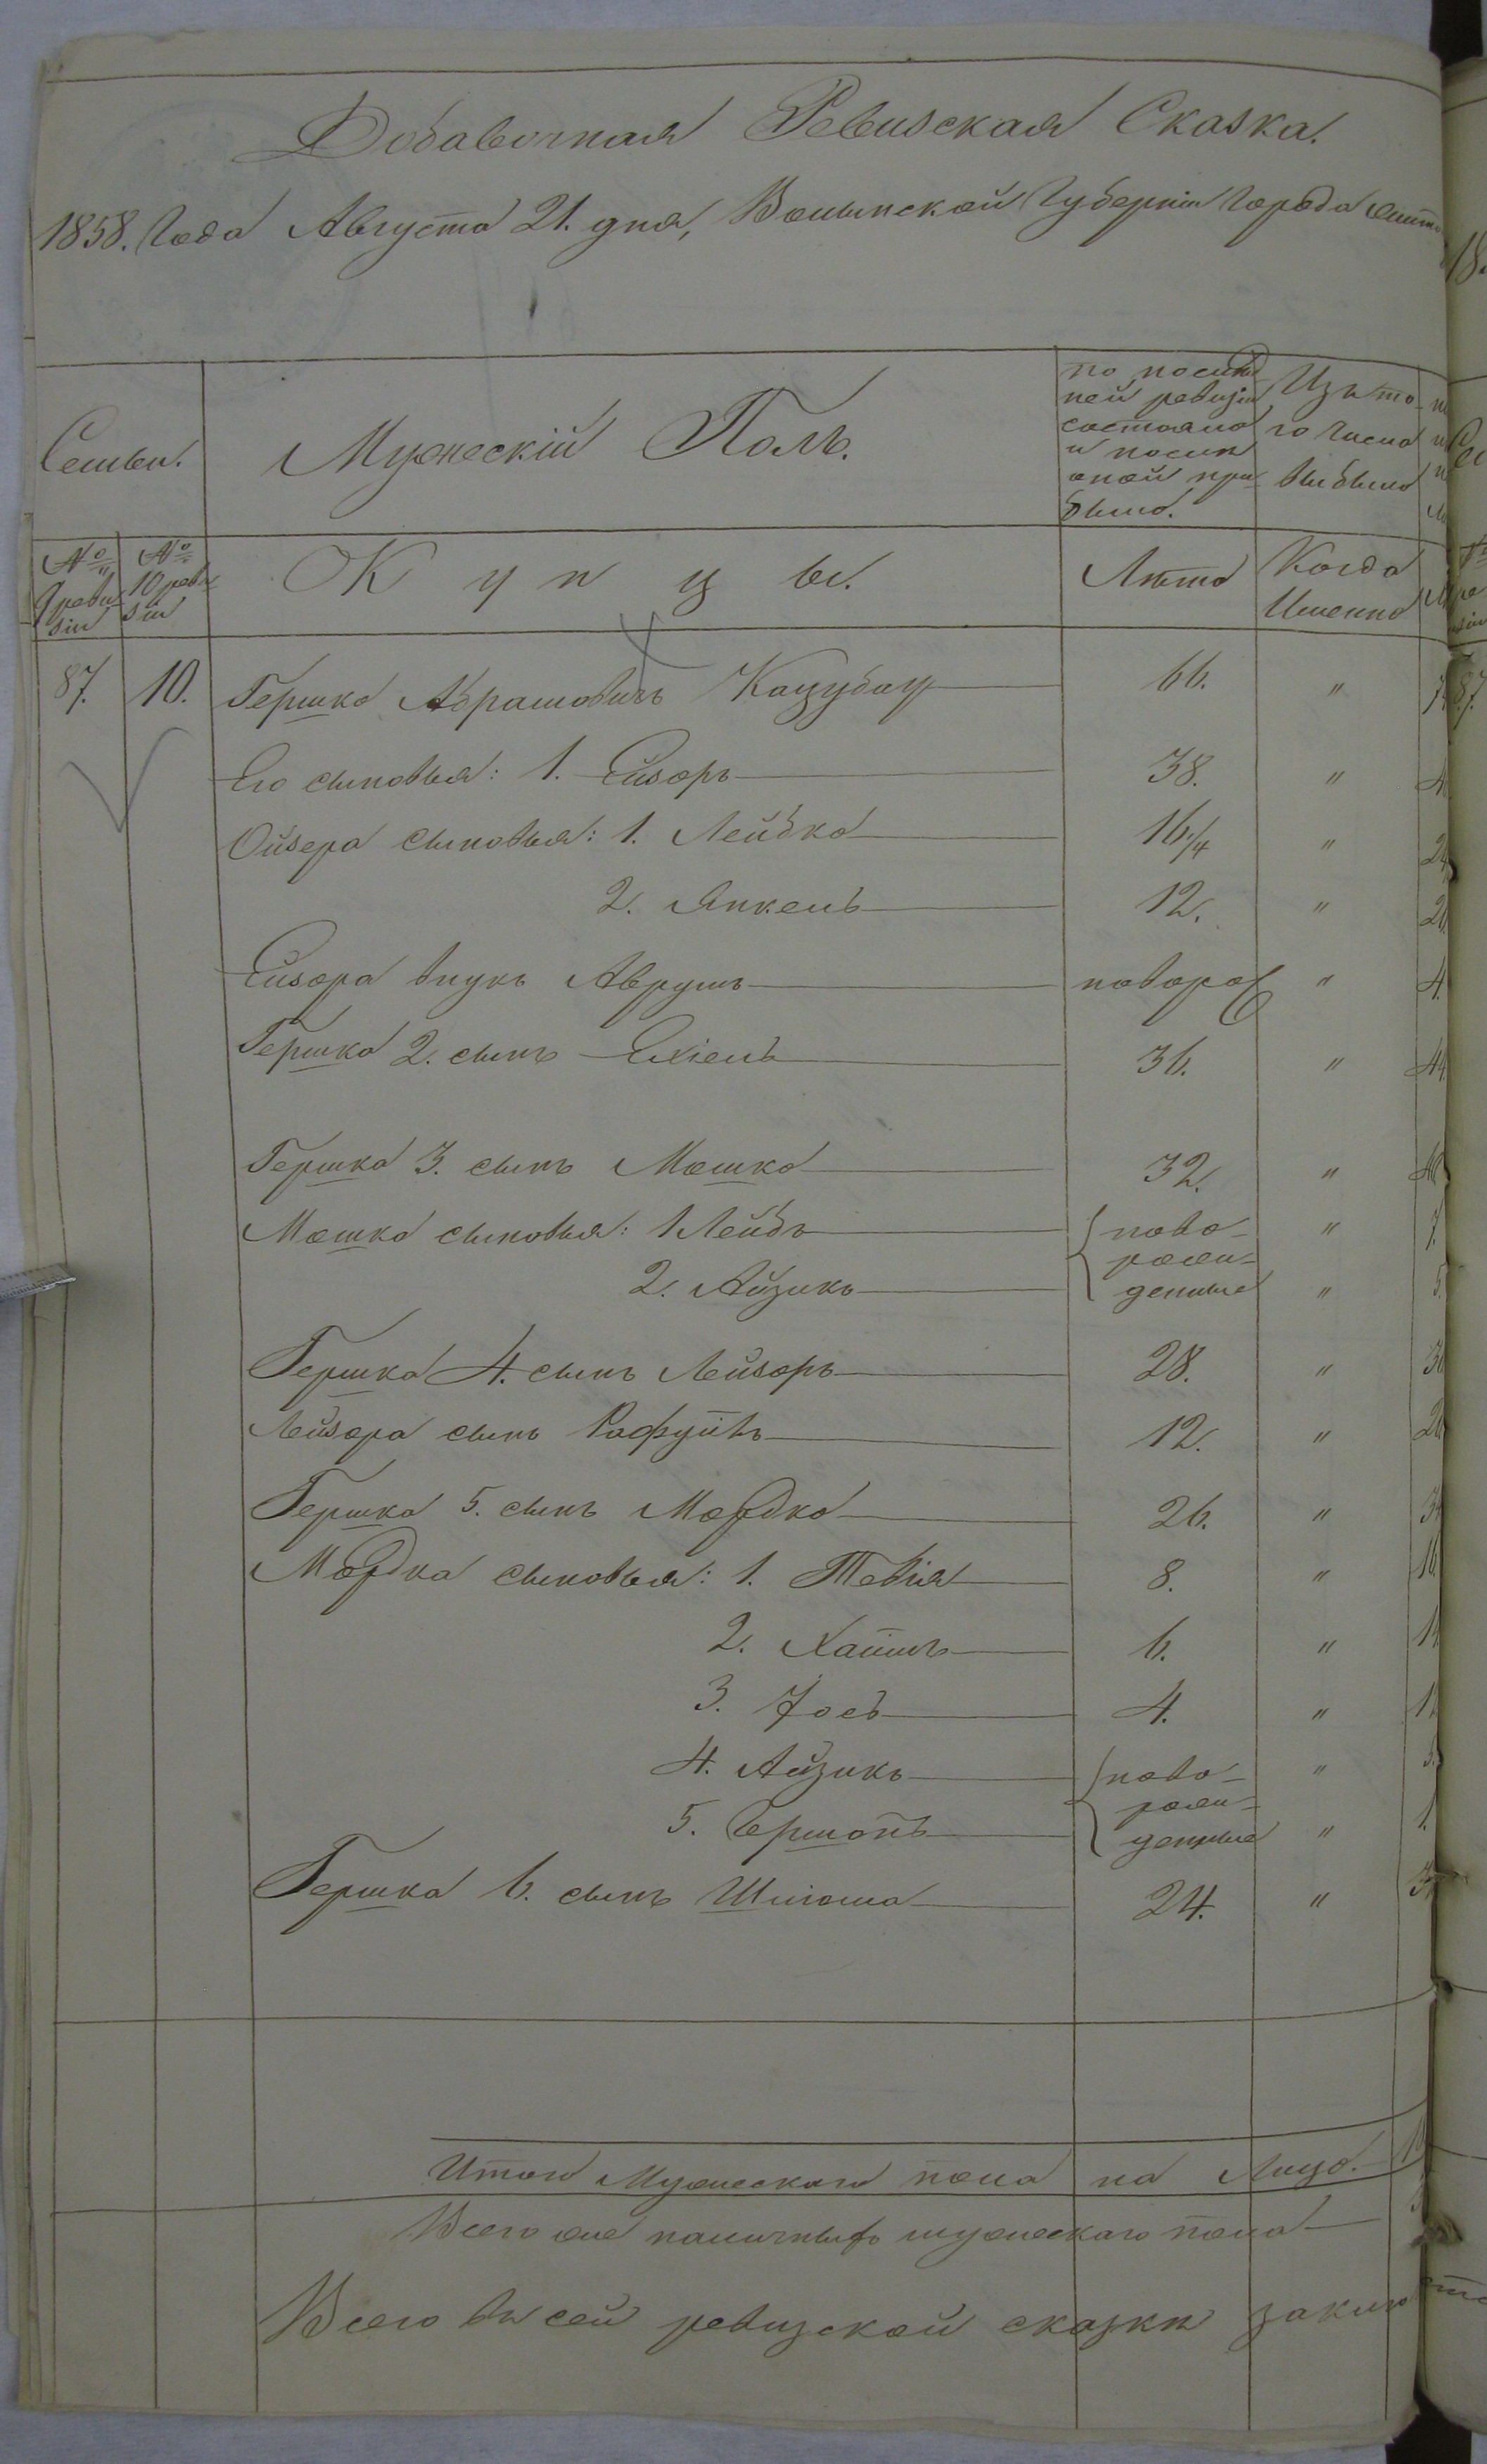 Добавочная Ревизская Сказка.
1858. Года Августа 21. дня, Волынской Губерніи Города
Семьи.
Мужескій Полъ.
по послѣд
ней ревизіи
состояло
и послѣ
оной при
было.
Изъ то
го числа
выбыло
№
9 реви
зіи
№
10 реви
зіи
К у п ц ы.
Лѣта
Когда
Именно
87. 10. Гершко Абрамовичъ Кацубац 66. "
Его сыновья: 1. Ейзоръ 38. "
Ойзера сыновья: 1. Лейбко 16 1/4 "
2. Янкель 12. "
Ейзора внукъ Аврумъ новорож "
Гершка 2. сынъ Ехіель 36. "
Гершка 3. сынъ Мошко 32. "
Мошка сыновья: 1 Лейбъ ново- "
рожи-
2. Айзикъ денные "
Гершка 4. сынъ Лейзоръ 28. "
Лейзора сынъ Рафуилъ 12. "
Гершка 5. сынъ Мордко 26. "
Мордка сыновья: 1. Тевія 8. "
2. Хаимъ 6. "
3. Іось 4. "
4. Айзикъ ново- "
рожи-
5. Гершонъ денные "
Гершка 6. сынъ Шліома 24. "
Итого Мужескаго пола на Лицо.
Всего же наличныхъ мужескаго пола
Всего въ сей ревизской сказкѣ заклю